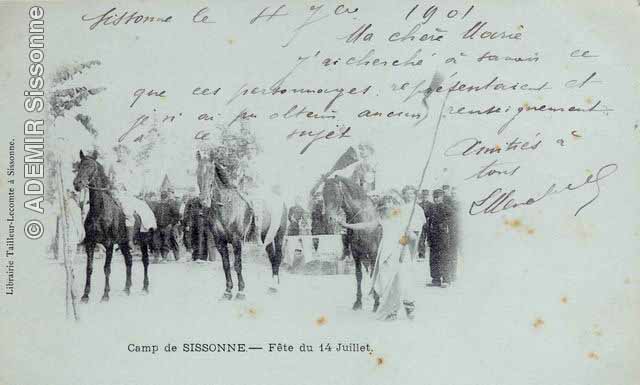 Sissonne le 4 7bre 1901
Ma chère Marie
J'ai cherché à savoir ce
que ces personnages représentaient et
je n'ai pu obtenir aucun renseignement
à ce sujet
Amitiés à
tous
Librairie Tailleur-Lecomte à Sissonne.
© ADEMIR Sissonne
Camp de SISSONNE.— Fête du 14 Juillet.